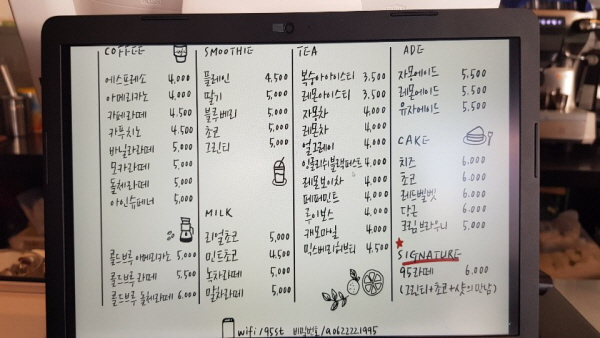 COFFEE
에스프레소 4.000
아메리카노 4.000
카페라떼 4.500
카푸치노 4.500
바닐라라떼 5.000
모카라떼 5.000
돌체라떼 5.000
아인슈페너 5.000
콜드브루 아메리카노 5.000
콜드브루 라떼 5.500
콜드브루 돌체라떼 6.000
SMOOTHIE
플레인 4.500
딸기 5.000
블루베리 5.000
초코 5.000
그린티 5.000
MILK
리얼초코 5.000
민트초코 4.500
녹차라떼 5.000
말차라떼 5.000
TEA
복숭아아이스티 3.500
레몬아이스티 3.500
자몽차 4.000
레몬차 4.000
얼그레이 4.000
잉글리쉬블랙퍼스트 4.000
레몬보이차 4.000
페퍼민트 4.000
루이보스 4.000
캐모마일 4.000
믹스베리허브티 4.500
ADE
자몽에이드 5.500
레몬에이드 5.500
유자에이드 5.500
CAKE
치즈 6.000
초코 6.000
레드벨벳 6.000
당근 6.000
크림브라우니 5.000
SIGNATURE
95라떼 6.000
(그린티+초코+샷의 만남)
wifi/95st 비밀번호/a0622221995